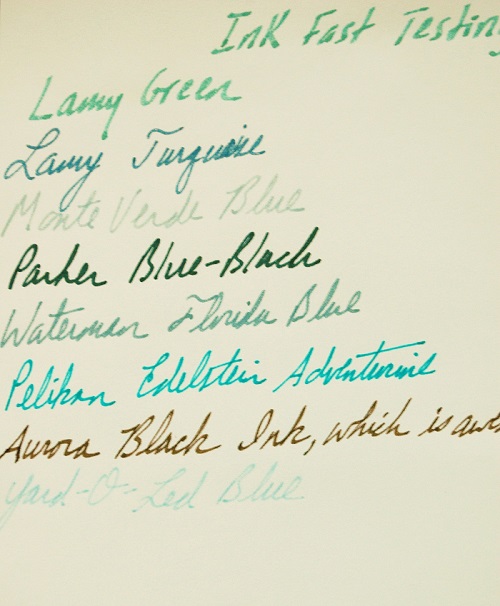 Ink Fast Testing
Lamy Green
Lamy Turquoise
Monte Verde Blue
Parker Blue-Black
Waterman Florida Blue
Pelikan Edelstein Adventurine
Aurora Black Ink, which is awe
Yard-O-Led Blue